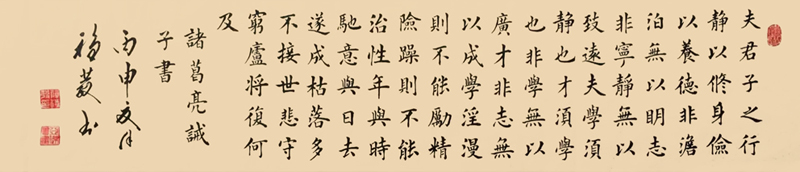 夫君子之行
静以修身儉
以養德非澹
泊無以明志
非寧静無以
致遠夫學須
静也才須學
也非學無以
廣才非志無
以成學淫漫
則不能勵精
險躁則不能
治性年與時
馳意與日去
遂成枯落多
不接世悲守
窮廬将復何
及
諸葛亮誡
子書
丙申夏月